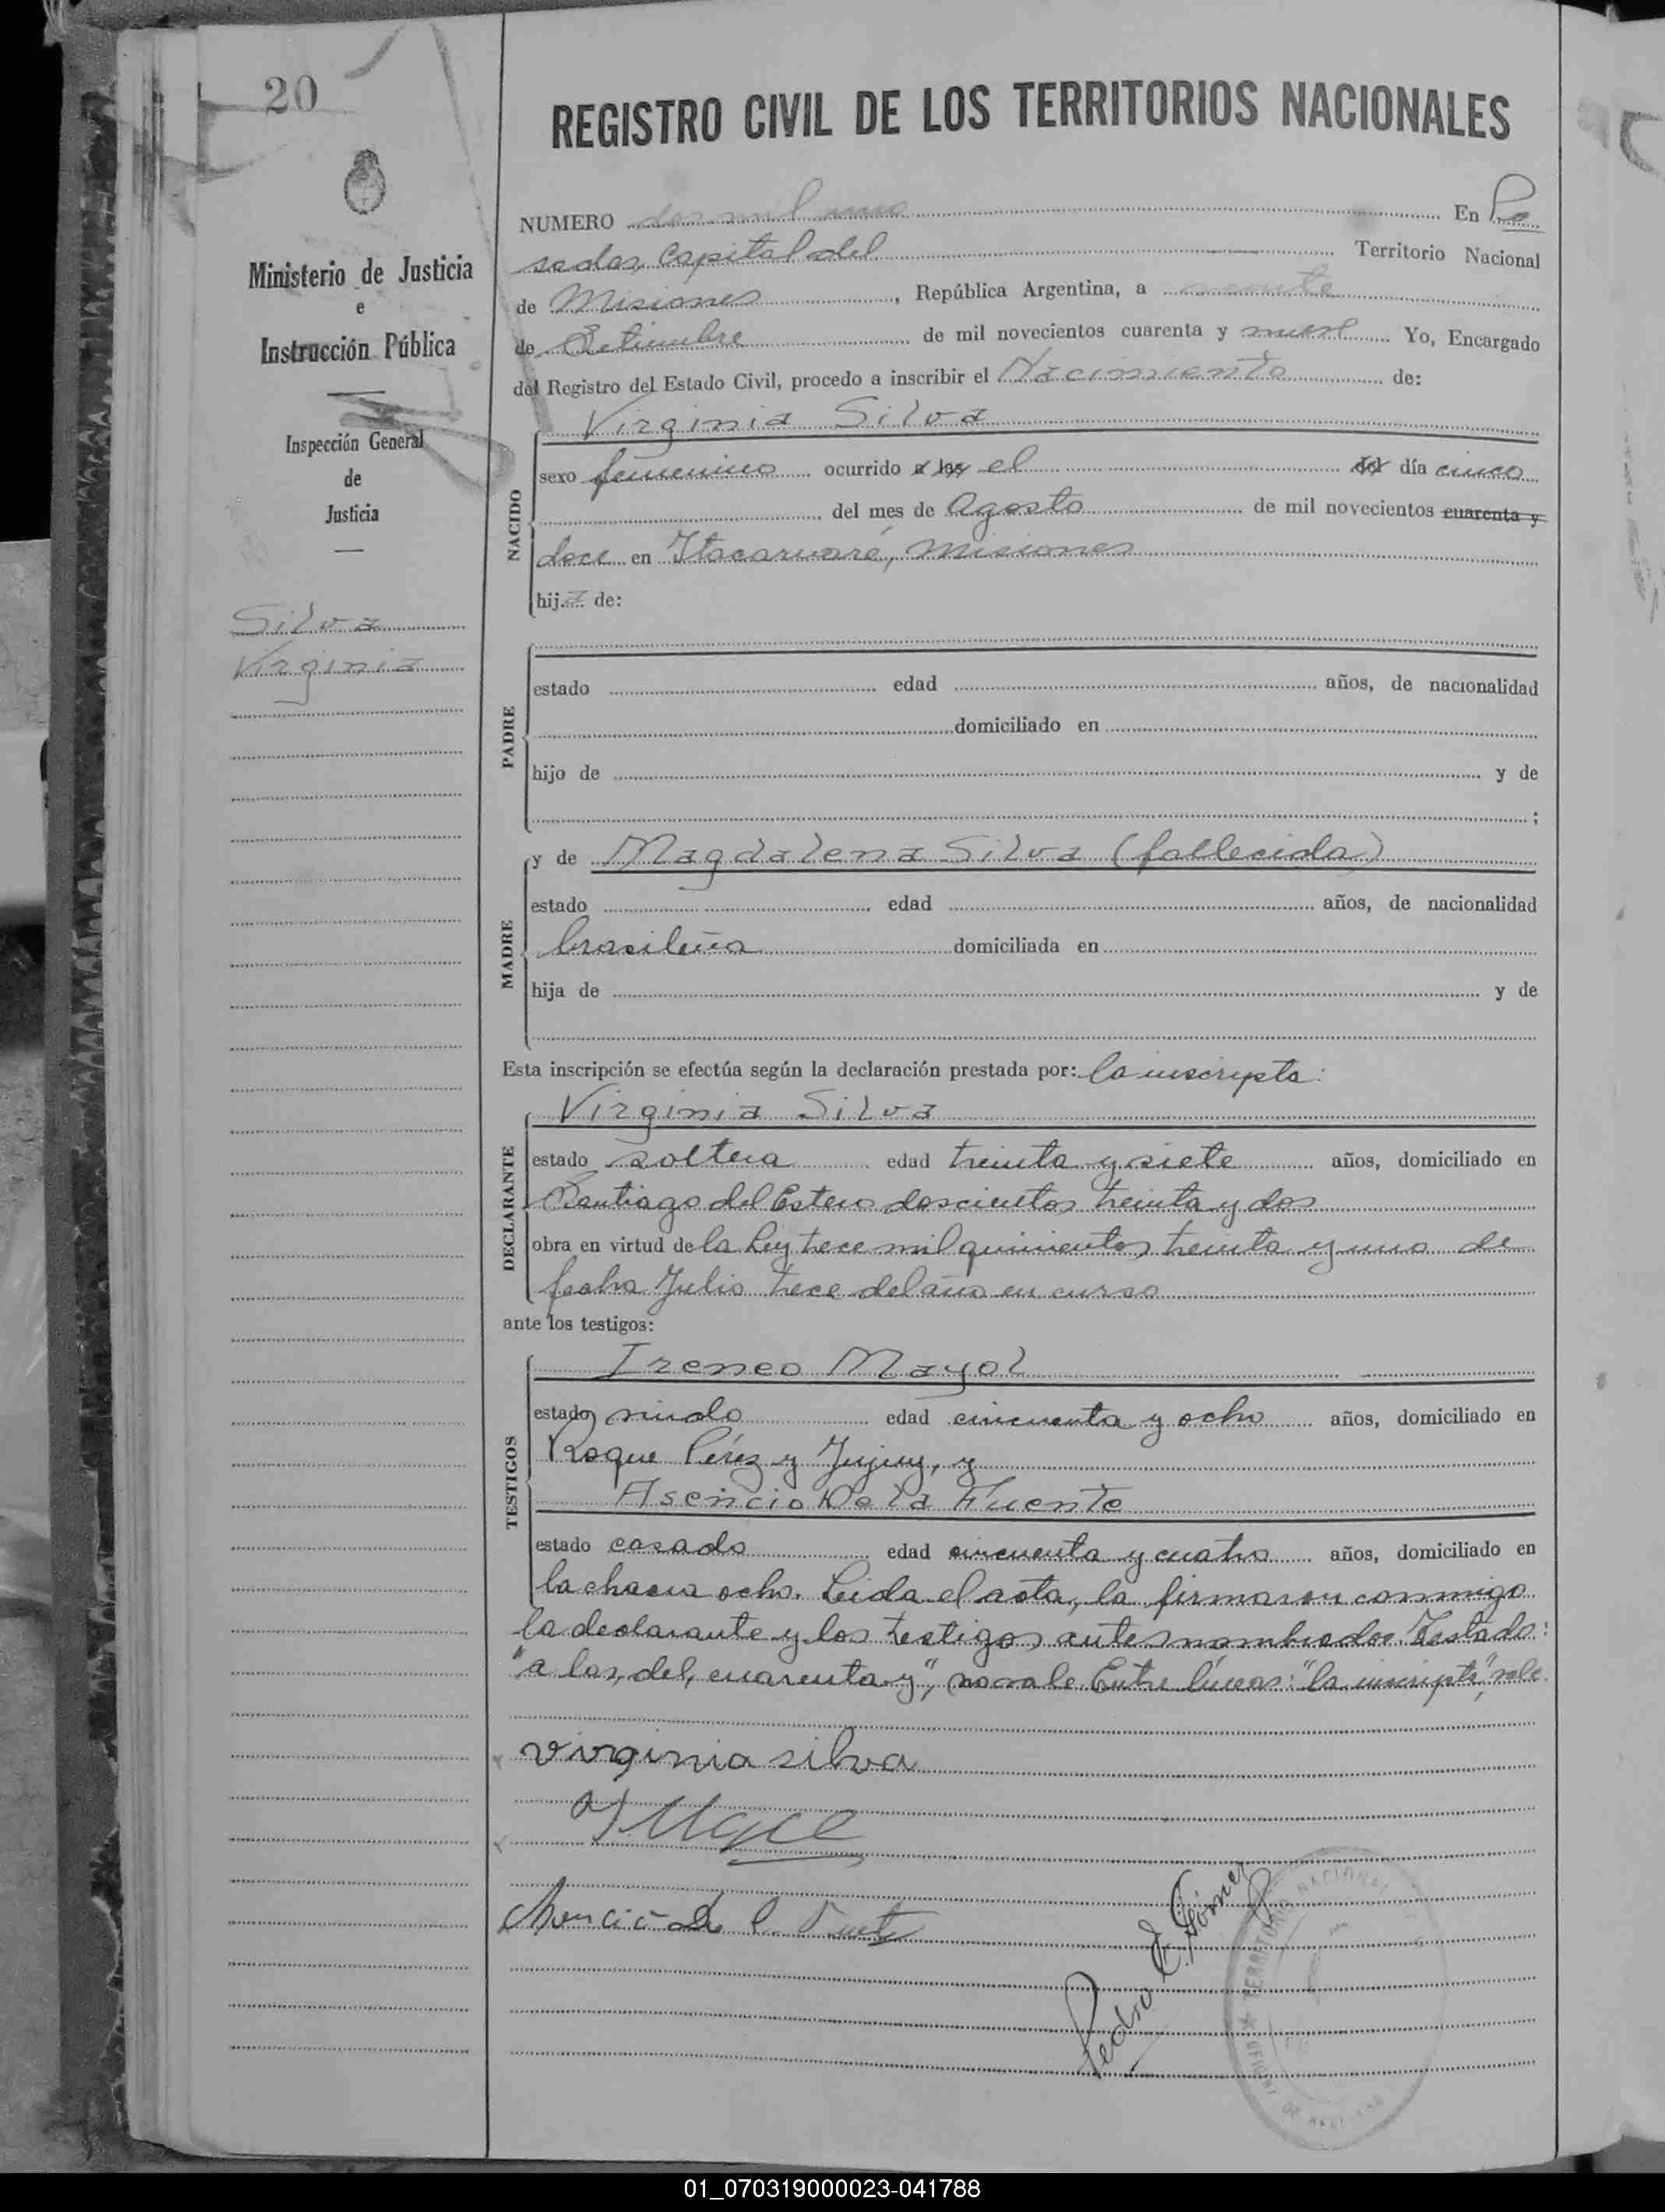 20
Ministerio de Justicia
e
Instrucción Pública
Inspección General
de
Justicia
Silva
Virginia
REGISTRO CIVIL DE LOS TERRITORIOS NACIONALES
NUMERO dos mil uno En Po
sadas, Capital del Territorio Nacional
de Misiones, República Argentina, a veinte
de Setiembre de mil novecientos cuarenta y nueve Yo, Encargado
del Registro del Estado Civil, procedo a inscribir el Nacimiento de:
NACIDO
Virginia Silva
sexo femenino ocurrido a las el del día cinco
del mes de Agosto de mil novecientos cuarenta y
doce en Itacaruaré, Misiones
hija de:
PADRE
estado edad años, de nacionalidad
domiciliado en
hijo de y de
;
MADRE
y de Magdalena Silva (fallecida)
estado edad años, de nacionalidad
brasileña domiciliada en
hija de y de
Esta inscripción se efectúa según la declaración prestada por: la inscripta:
DECLARANTE
Virginia Silva
estado soltera edad treinta y siete años, domiciliado en
Santiago del Estero doscientos treinta y dos
obra en virtud de la Ley trece mil quinientos treinta y uno de
fecha Julio trece del año en curso
ante los testigos:
TESTIGOS
Ireneo Mayol
estado viudo edad cincuenta y ocho años, domiciliado en
Roque Pérez y Jujuy, y
Asencio De la Fuente
estado casado edad cincuenta y cuatro años, domiciliado en
la chacra ocho. Leida el acta, la firmaron conmigo
la declarante y los testigos antes nombrados. Testado:
"a las, del, cuarenta y", no vale. Entre líneas: "la inscripta", vale.
virginia silva
Asencio De l Fuente
Pedro E. Gómez
TERRITORIO NACIONAL
01_070319000023-041788